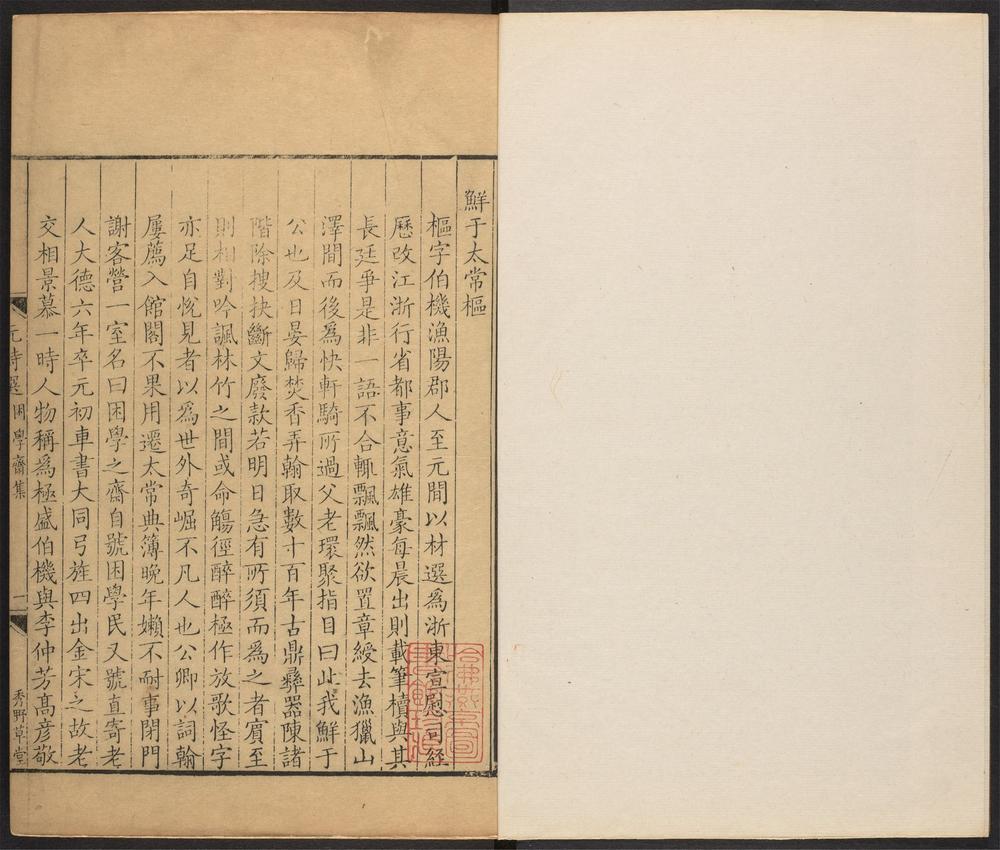 鮮于太常樞
樞字伯機漁陽郡人至元間以材選爲浙東宣慰司經
歷改江浙行省都事意氣雄豪每晨出則載筆櫝與其
長廷爭是非一語不合輒飄飄然欲置章綬去漁獵山
澤間而後爲快軒騎所過父老環聚指目曰此我鮮于
公也及日晏歸焚香弄翰取數十百年古鼎彝器陳諸
階除搜抉斷文廢款若明日急有所須而爲之者賓至
則相對吟諷林竹之間或命觴徑醉醉極作放歌怪字
亦足自悅見者以爲世外奇崛不凡人也公卿以詞翰
屢薦入館閣不果用遷太常典簿晚年嬾不耐事閉門
謝客營一室名曰困學之齋自號困學民又號直寄老
人大德六年卒元初車書大同弓旌四出金宋之故老
交相景慕一時人物稱爲極盛伯機與李仲芳高彥敬
元詩選 困學齋集 一 秀野草堂
哈佛燕京圖書館珍藏